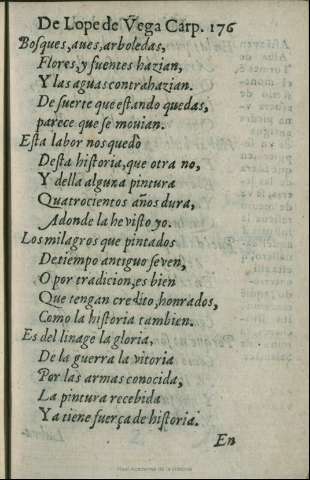 De Lope de Vega Carp. 176
Bosques, aues, arboledas,
Flores, y fuentes hazian,
Y las aguas contrahazian.
De suerte que estando quedas,
parece que se mouian.
Esta labor nos quedò
Desta historia, que otra no,
Y della alguna pintura
Quatrocientos años dura,
Adonde la he visto yo.
Los milagros que pintados
De tiempo antiguo se ven,
O por tradicion, es bien
Que tengan credito, honrados,
Como la historia tambien.
Es del linage la gloria,
De la guerra la vitoria
Por las armas conocida,
La pintura recebida
Ya tiene fuerça de historia.
En
Real Academia de la Historia